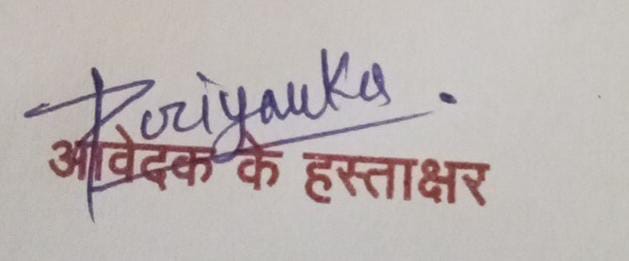 Priyanka.
आवेदक के हस्ताक्षर